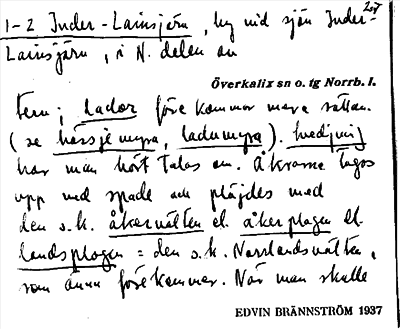 257
1-2 Inder-Lainsjärn, by vid sjön Inder-
Lainsjärn, i N. delen av
Överkalix sn o. tg Norrb. l.
tern; lador förekommer mera sällan.
(se hässjemyra, ladumyra). Svedjning
har man hört talas om. Åkrarna togos
upp med spade och plöjdes med
den s.k. åkervälten el. åkerplogen el.
landsplogen = den s.k. Norrlandsvälten,
som ännu förekommer. När man skulle
EDVIN BRÄNNSTRÖM 1937